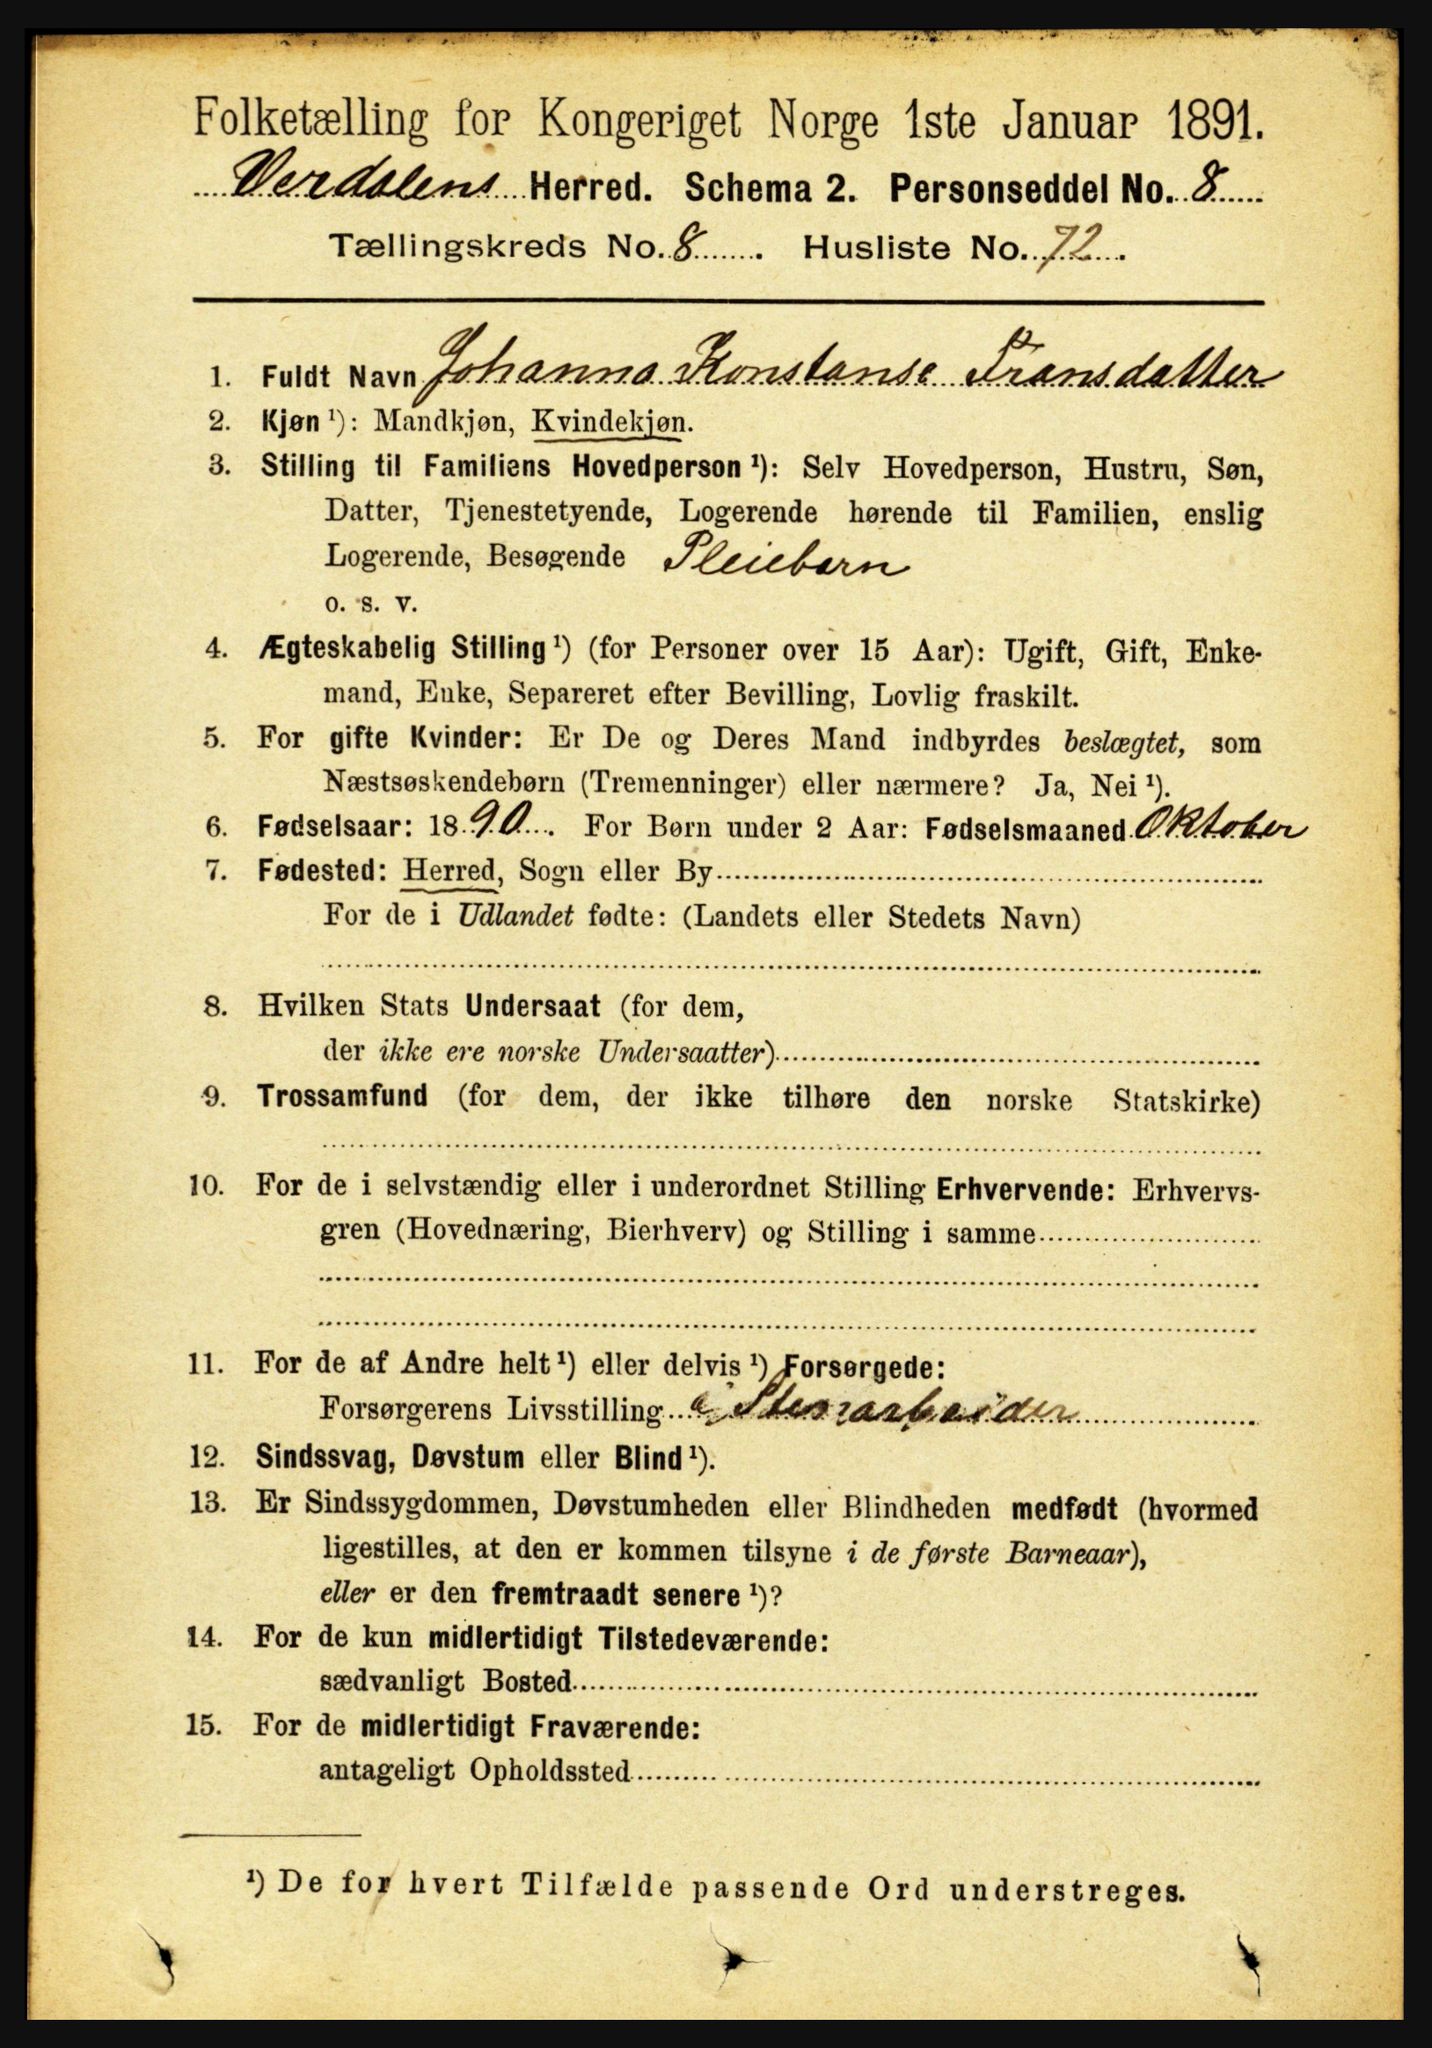 Folketælling for Kongeriget Norge 1ste Januar 1891.
Verdalens Herred. Schema 2. Personseddel No. 8
Tællingskreds No. 8. Husliste No. 72.
1. Fuldt Navn Johanna Konstanse Fransdatter
2. Kjøn ¹): Mandkjøn, Kvindekjøn.
3. Stilling til Familiens Hovedperson ¹): Selv Hovedperson, Hustru, Søn,
Datter, Tjenestetyende, Logerende hørende til Familien, enslig
Logerende, Besøgende Pleiebarn
o. s. v.
4. Ægteskabelig Stilling ¹) (for Personer over 15 Aar): Ugift, Gift, Enke-
mand, Enke, Separeret efter Bevilling, Lovlig fraskilt.
5. For gifte Kvinder: Er De og Deres Mand indbyrdes beslægtet, som
Næstsøskendebørn (Tremenninger) eller nærmere? Ja, Nei ¹).
6. Fødselsaar: 1890. For Børn under 2 Aar: Fødselsmaaned Oktober
7. Fødested: Herred, Sogn eller By
For de i Udlandet fødte: (Landets eller Stedets Navn)
8. Hvilken Stats Undersaat (for dem,
der ikke ere norske Undersaatter)
9. Trossamfund (for dem, der ikke tilhøre den norske Statskirke)
10. For de i selvstændig eller i underordnet Stilling Erhvervende: Erhvervs-
gren (Hovednæring, Bierhverv) og Stilling i samme
11. For de af Andre helt ¹) eller delvis ¹) Forsørgede:
Forsørgerens Livsstilling Stenarbeider
12. Sindssvag, Døvstum eller Blind ¹).
13. Er Sindssygdommen, Døvstumheden eller Blindheden medfødt (hvormed
ligestilles, at den er kommen tilsyne i de første Barneaar),
eller er den fremtraadt senere ¹)?
14. For de kun midlertidigt Tilstedeværende:
sædvanligt Bosted
15. For de midlertidigt Fraværende:
antageligt Opholdssted
¹) De for hvert Tilfælde passende Ord understreges.